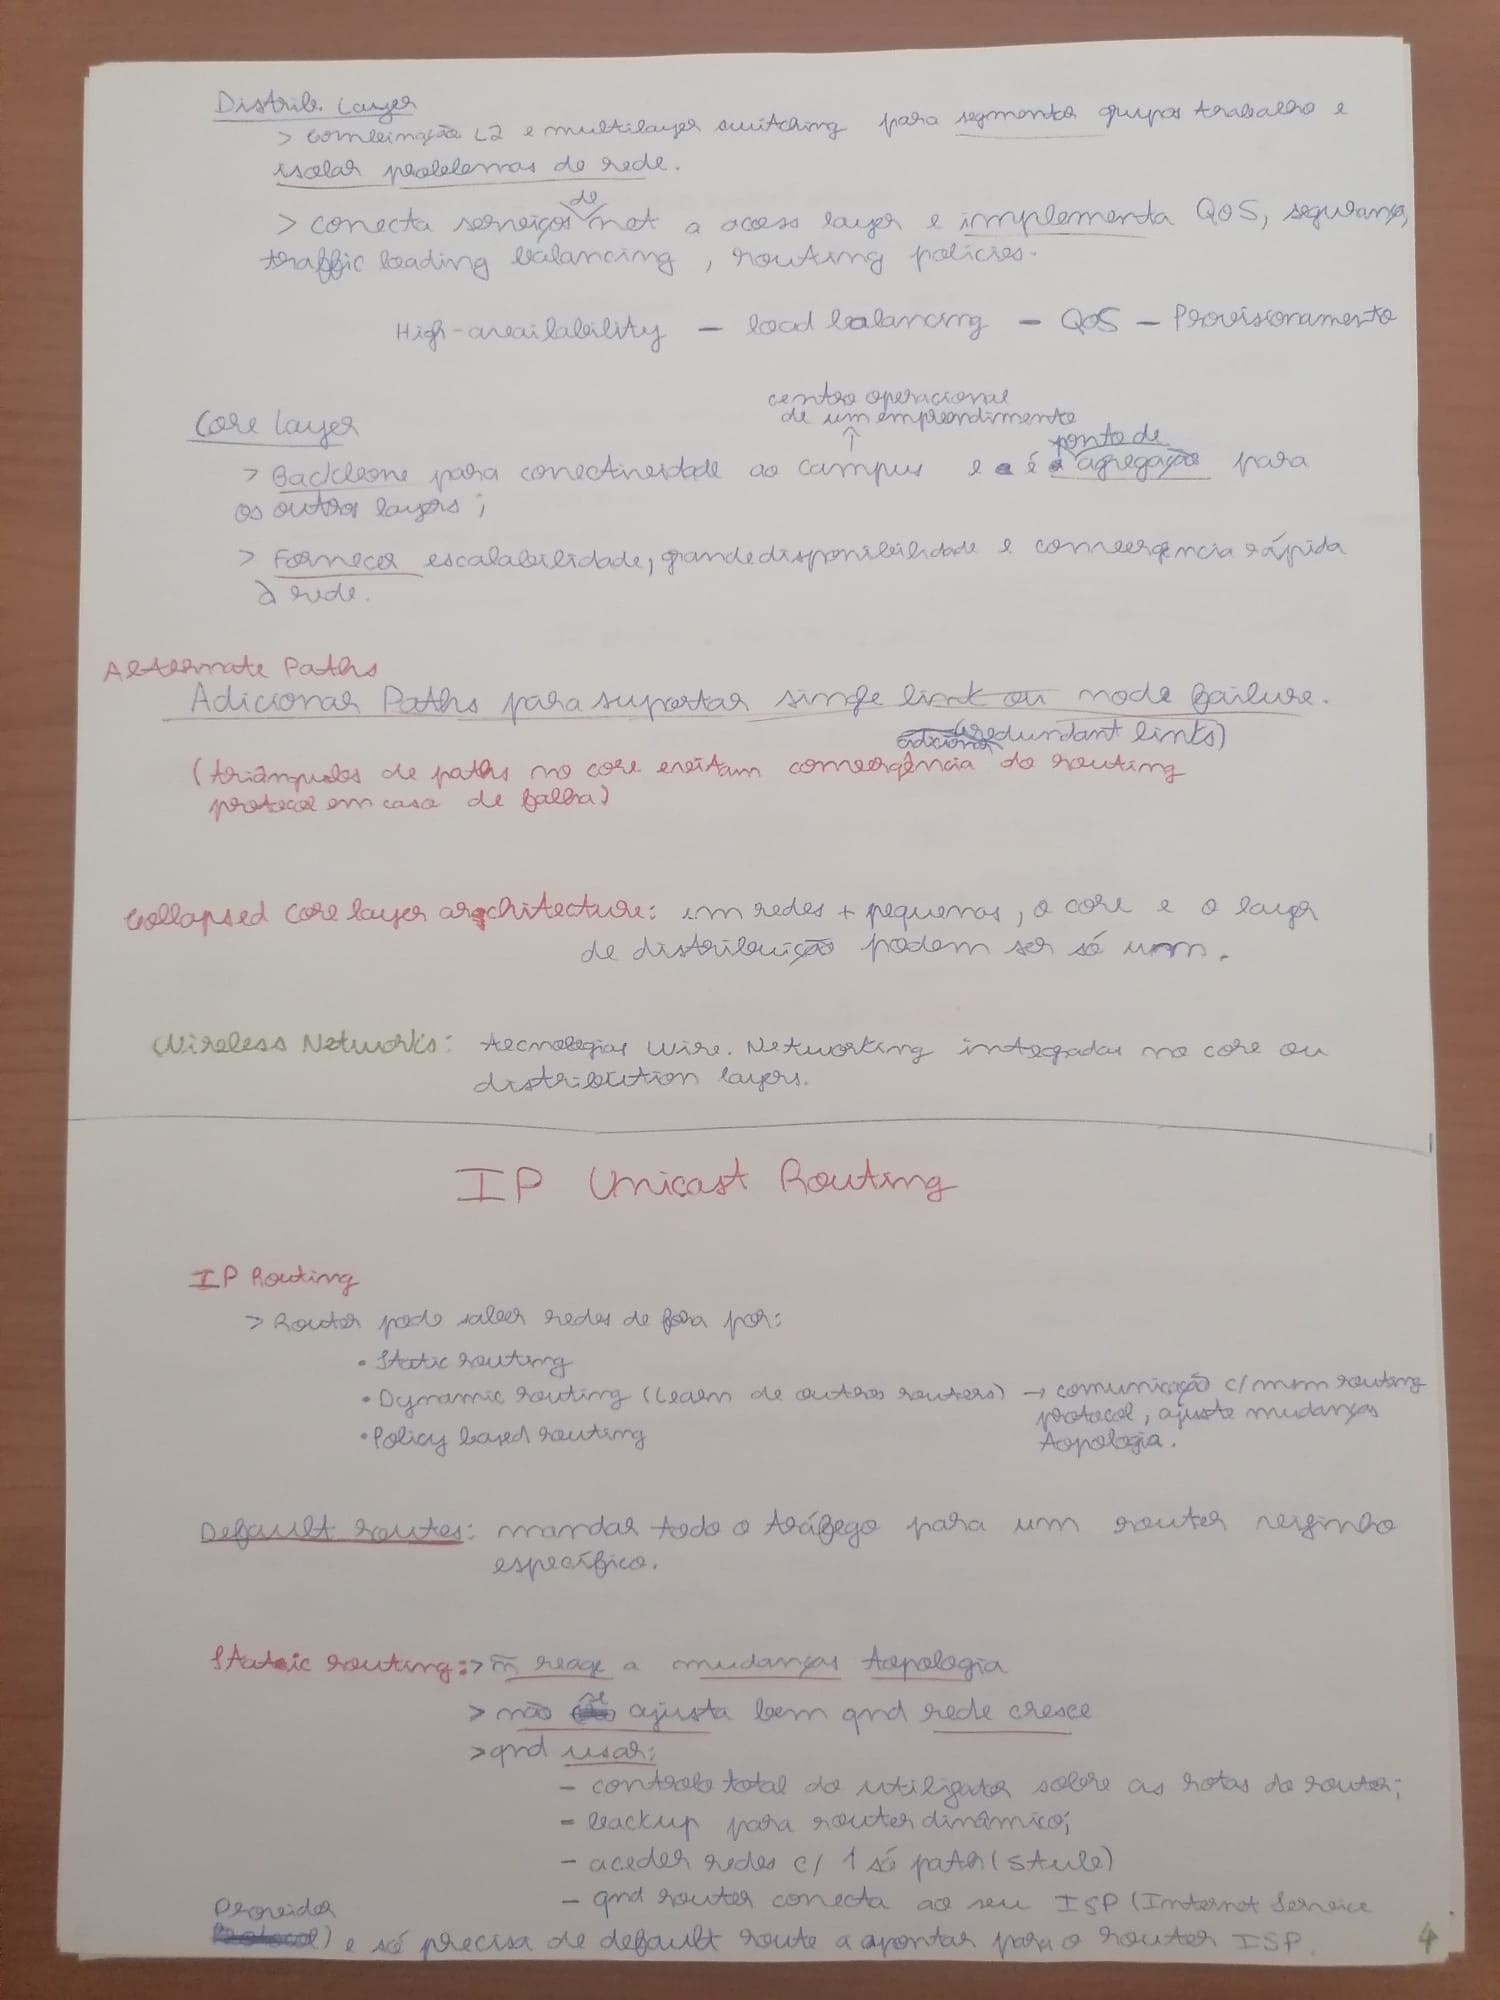 Distrib. Layer
> combinação L2 e multilayer switching para segmentar grupos trabalho e
isolar problemas de rede.
de
> conecta serviços net a acess layer e implementa QoS, segurança,
traffic loading balancing, routing policies.
High-availability - load balancing - QoS - Provisionamento
centro operacional
de um empreendimento
↑
Core Layer
ponto de
> Backbone para conectividade ao campus e é agregação para
os outros layers;
> Fornecer escalabilidade, grande disponibilidade e convergência rápida
à rede.
Alternate Paths
Adicionar Paths para suportar single link ou node failure.
(redundant links)
(triângulos de paths no core evitam convergência do routing
protocol em caso de falha)
Collapsed Core layer architecture: em redes + pequenas, o core e o layer
de distribuição podem ser só um.
Wireless Networks: tecnologias Wire. Networking integradas no core ou
distribution layers.
IP Unicast Routing
IP Routing
> Router pode saber redes de fora por:
• Static routing
• Dynamic routing (learn de outros routers) → comunicação c/ mm routing
protocol, ajuste mudanças
topologia.
• Policy based routing
Default routes: mandar todo o tráfego para um router vizinho
específico.
Static routing: > ñ reage a mudanças topologia
> não se ajusta bem qnd rede cresce
> qnd usar:
- controlo total do utilizador sobre as rotas do router;
- backup para router dinâmico;
- aceder redes c/ 1 só path (stub)
- qnd router conecta ao seu ISP (Internet Service
Provider
) e só precisa de default route a apontar para o router ISP.
4